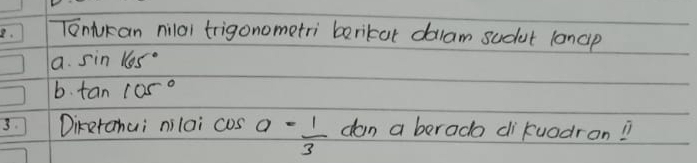 2. Tentukan nilai trigonometri berikut dalam sudut lancip
a. sin 165°
b. tan 105°
3. Diketahui nilai cos a = 1/3 dan a berada di kuadran II